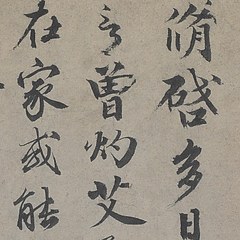 脩啓多日
言曾灼艾
在家或能